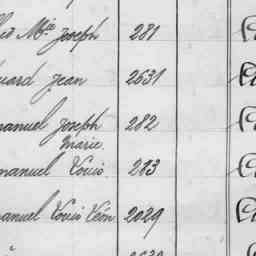 Mie Joseph 281
uard Jean 2631
manuel Joseph 282
Marie
manuel Louis 283
manuel Louis Léon 2029